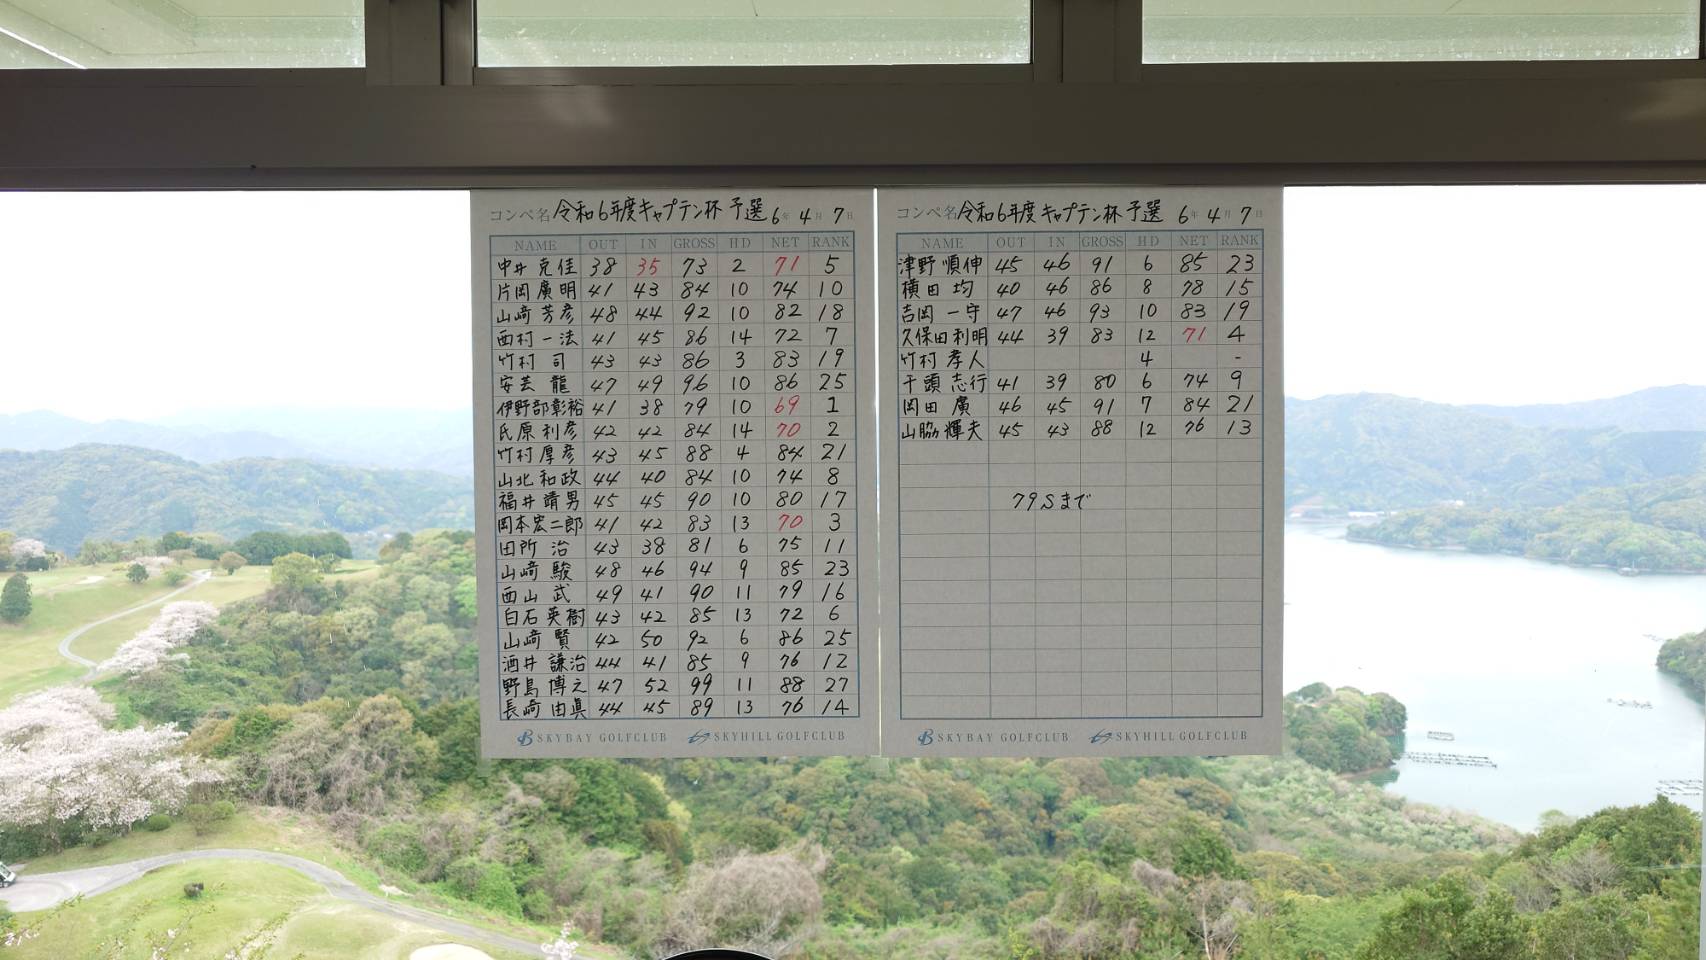 コンペ名 令和6年度キャプテン杯 予選 6年 4月 7日
NAME OUT IN GROSS HD NET RANK
中井 克佳 38 35 73 2 71 5
片岡 廣明 41 43 84 10 74 10
山﨑 芳彦 48 44 92 10 82 18
西村 一法 41 45 86 14 72 7
竹村 司 43 43 86 3 83 19
安芸 龍 47 49 96 10 86 25
伊野部彰裕 41 38 79 10 69 1
氏原 利彦 42 42 84 14 70 2
竹村 厚彦 43 45 88 4 84 21
山北 和政 44 40 84 10 74 8
福井 靖男 45 45 90 10 80 17
岡本宏二郎 41 42 83 13 70 3
田所 治 43 38 81 6 75 11
山﨑 駿 48 46 94 9 85 23
西山 武 49 41 90 11 79 16
白石 英樹 43 42 85 13 72 6
山﨑 賢 42 50 92 6 86 25
酒井 謙治 44 41 85 9 76 12
野島 博之 47 52 99 11 88 27
長﨑 由眞 44 45 89 13 76 14
SKYBAY GOLFCLUB SKYHILL GOLFCLUB
コンペ名 令和6年度キャプテン杯 予選 6年 4月 7日
NAME OUT IN GROSS HD NET RANK
津野 順伸 45 46 91 6 85 23
横田 均 40 46 86 8 78 15
吉岡 一守 47 46 93 10 83 19
久保田利明 44 39 83 12 71 4
竹村 孝人 4 -
千頭 志行 41 39 80 6 74 9
岡田 廣 46 45 91 7 84 21
山脇 輝夫 45 43 88 12 76 13
79Sまで
SKYBAY GOLFCLUB SKYHILL GOLFCLUB